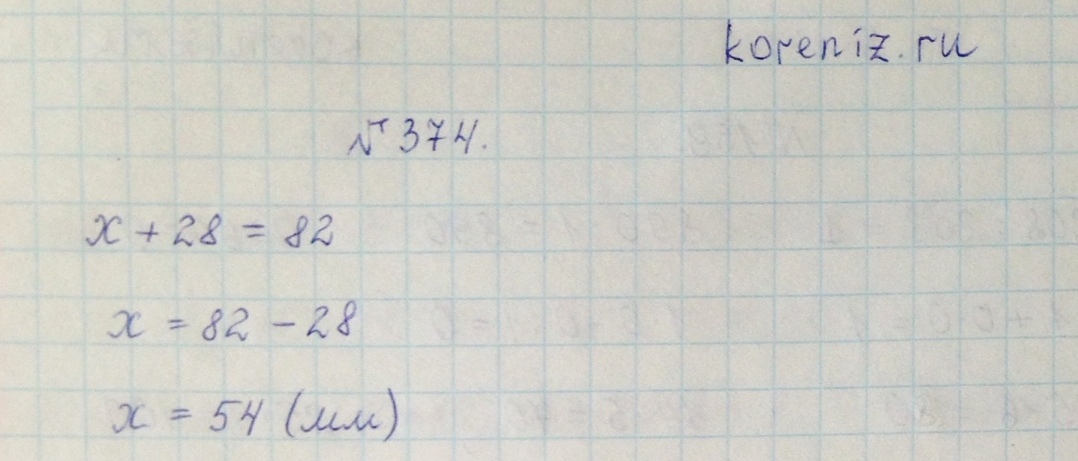 koreniz.ru
№ 374.
x + 28 = 82
x = 82 - 28
x = 54 (мм)